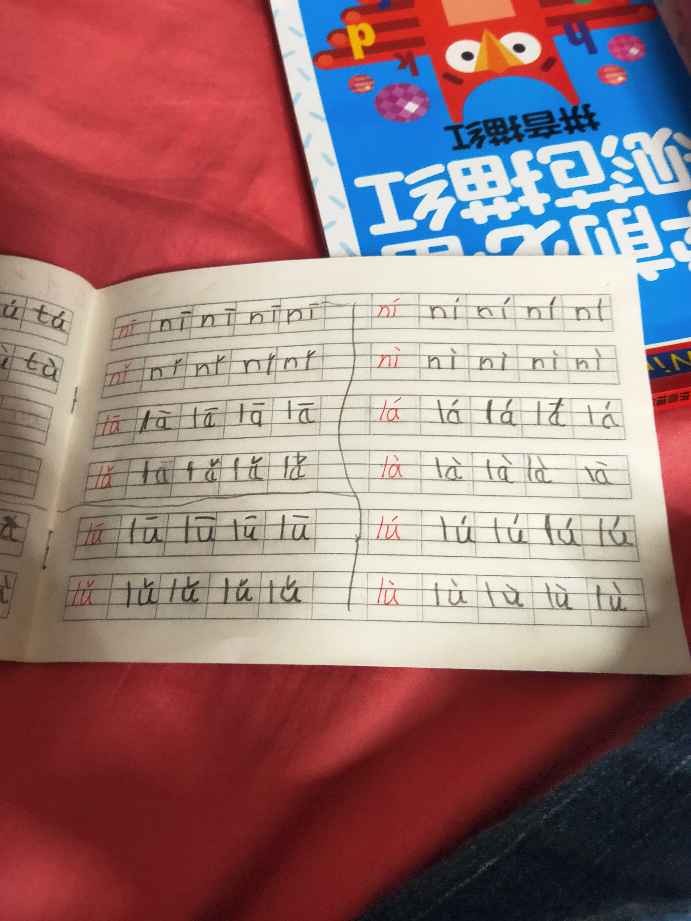 拼音描红
范描红
tá nī nī nī nī nī ní ní ní ní ní
tà nǐ nǐ nǐ nǐ nǐ nì nì nì nì nì
lā là lā lā lā lá lá lá lá lá
lǎ lǎ lǎ lǎ là là là là là
lū lū lū lū lū lú lú lú lú lú
lǔ lǔ lǔ lǔ lǔ lù lù lù lù lù